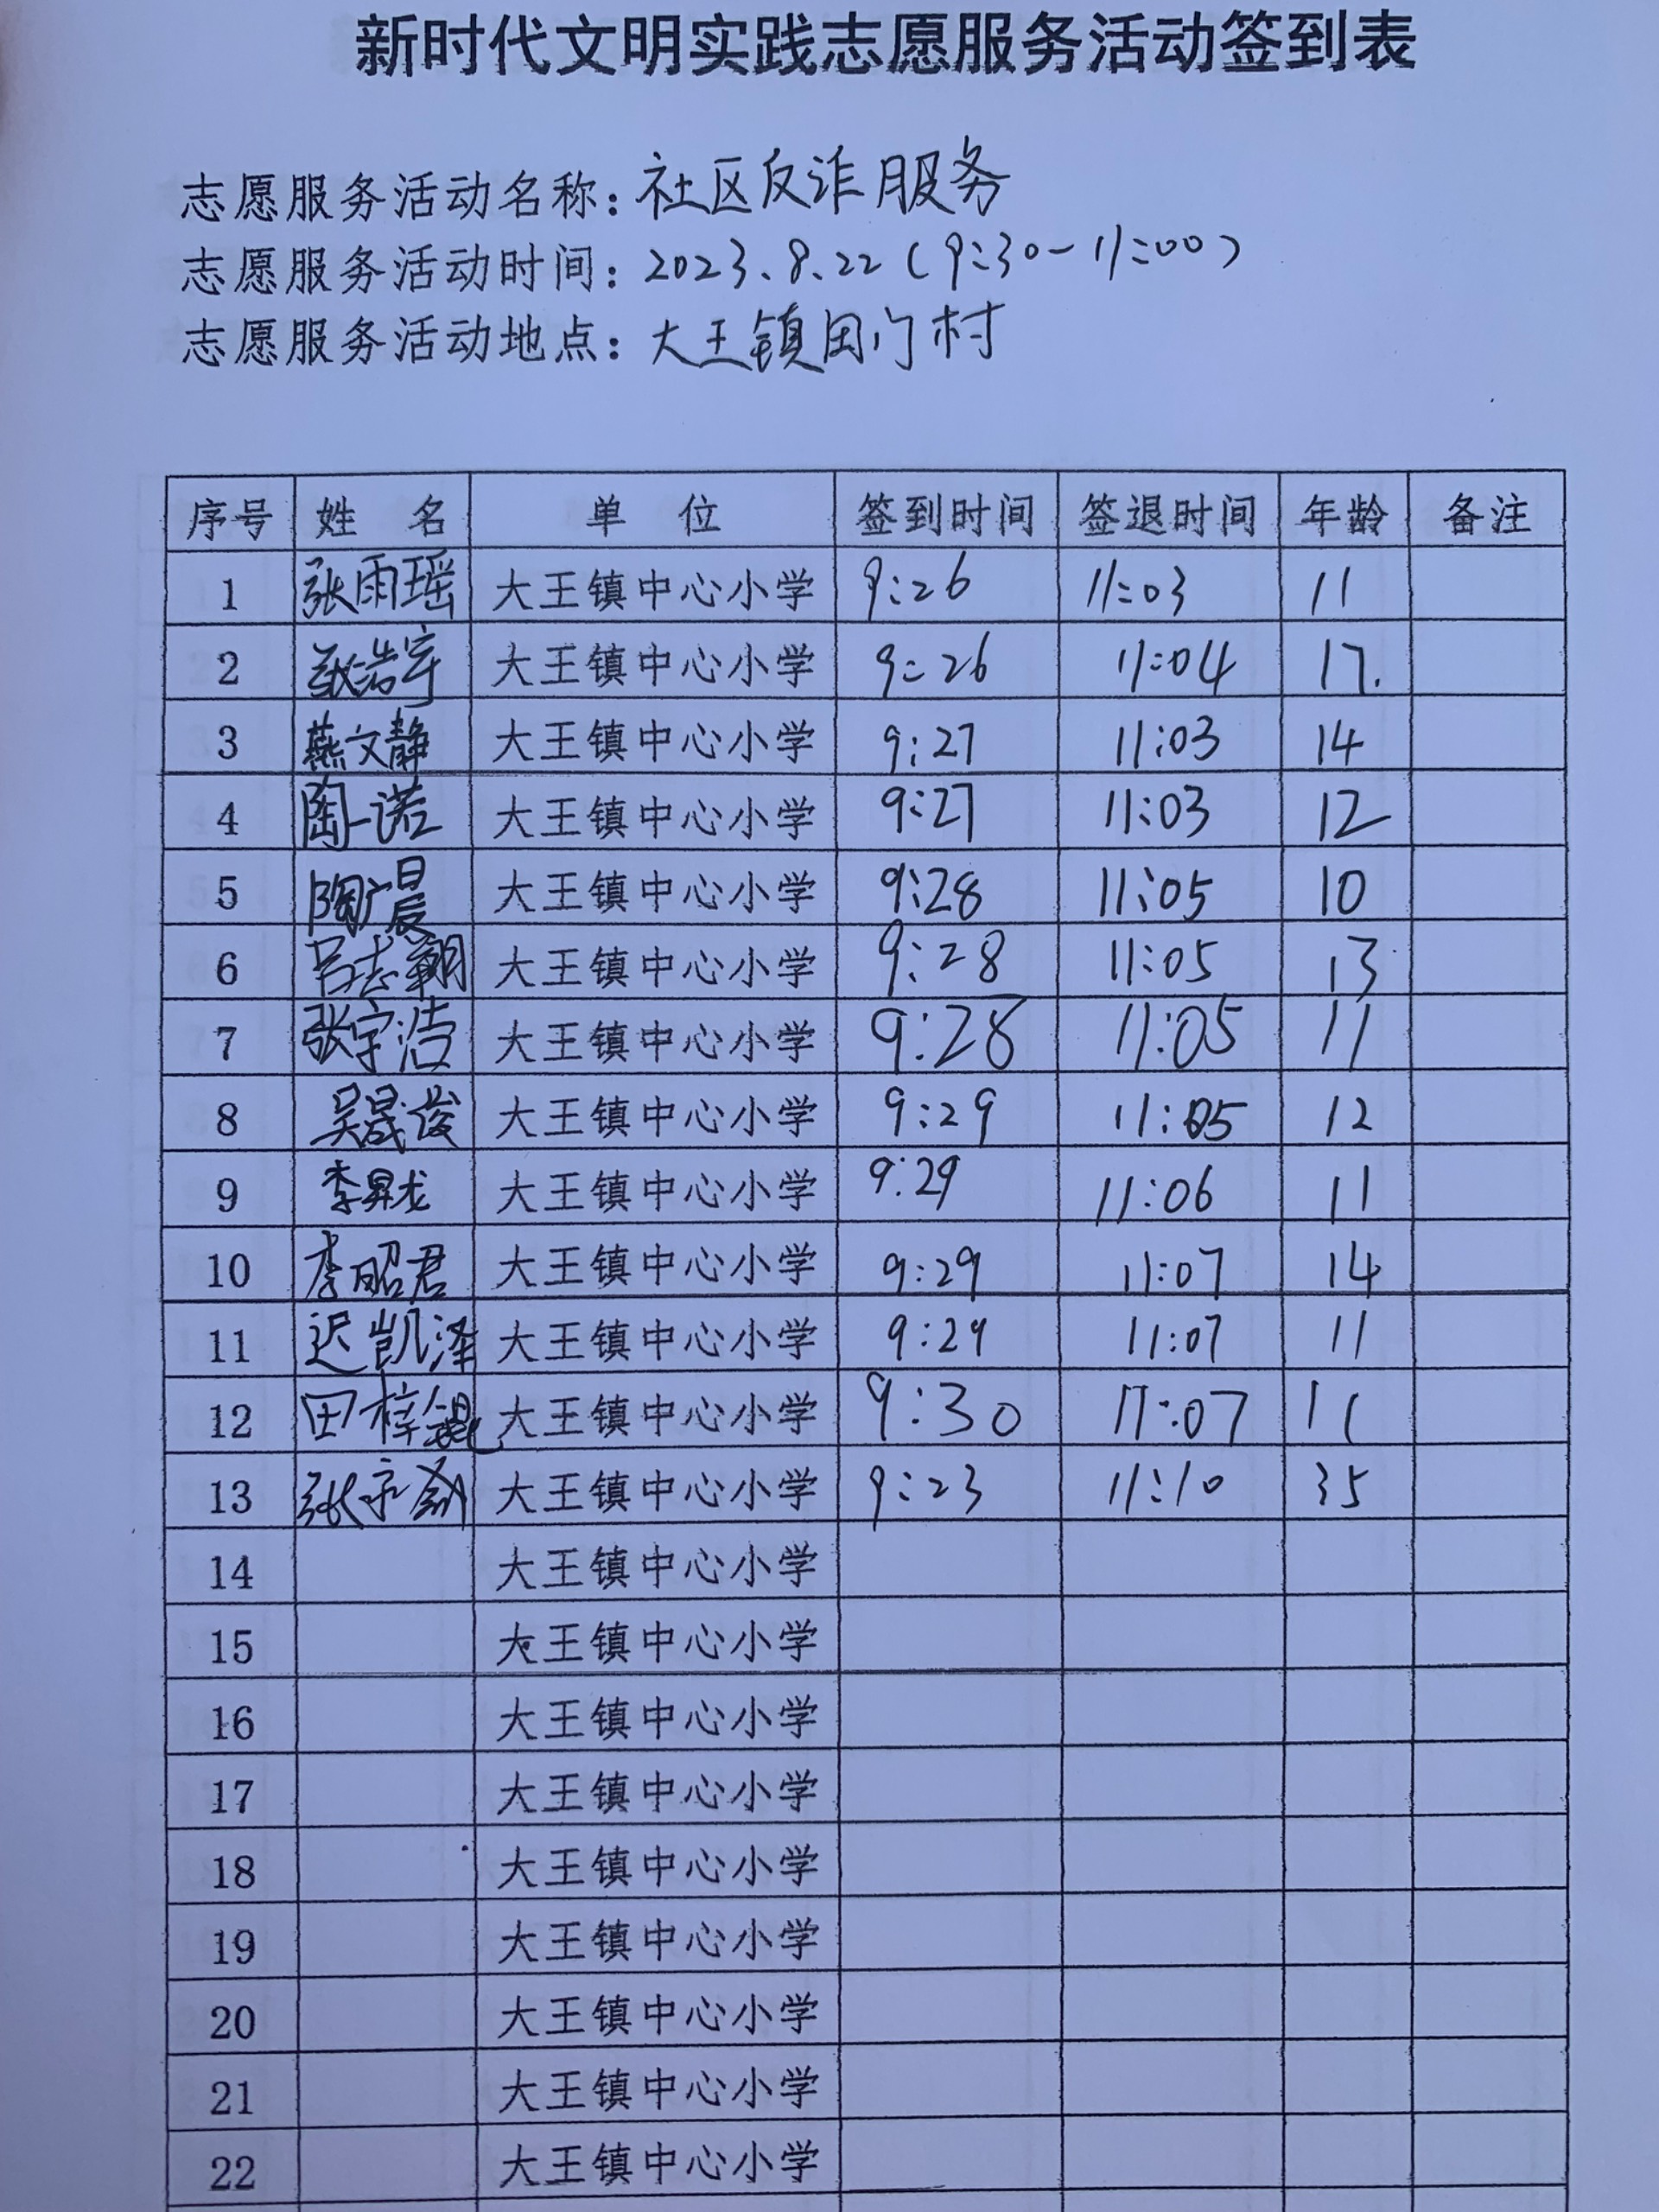 新时代文明实践志愿服务活动签到表
志愿服务活动名称：社区反诈服务
志愿服务活动时间：2023.8.22（9:30-11:00）
志愿服务活动地点：大王镇田门村
序号 姓 名 单 位 签到时间 签退时间 年龄 备注
1 张雨瑶 大王镇中心小学 9:26 11:03 11
2 浩宇 大王镇中心小学 9:26 11:04 17.
3 燕文静 大王镇中心小学 9:27 11:03 14
4 陶一诺 大王镇中心小学 9:27 11:03 12
5 陶广晨 大王镇中心小学 9:28 11:05 10
6 吕志翰 大王镇中心小学 9:28 11:05 13
7 张宇浩 大王镇中心小学 9:28 11:05 11
8 吴晟俊 大王镇中心小学 9:29 11:05 12
9 李昇龙 大王镇中心小学 9:29 11:06 11
10 李昭君 大王镇中心小学 9:29 11:07 14
11 迟凯泽 大王镇中心小学 9:29 11:07 11
12 田梓锟 大王镇中心小学 9:30 11:07 11
13 张 大王镇中心小学 9:23 11:10 35
14 大王镇中心小学
15 大王镇中心小学
16 大王镇中心小学
17 大王镇中心小学
18 大王镇中心小学
19 大王镇中心小学
20 大王镇中心小学
21 大王镇中心小学
22 大王镇中心小学